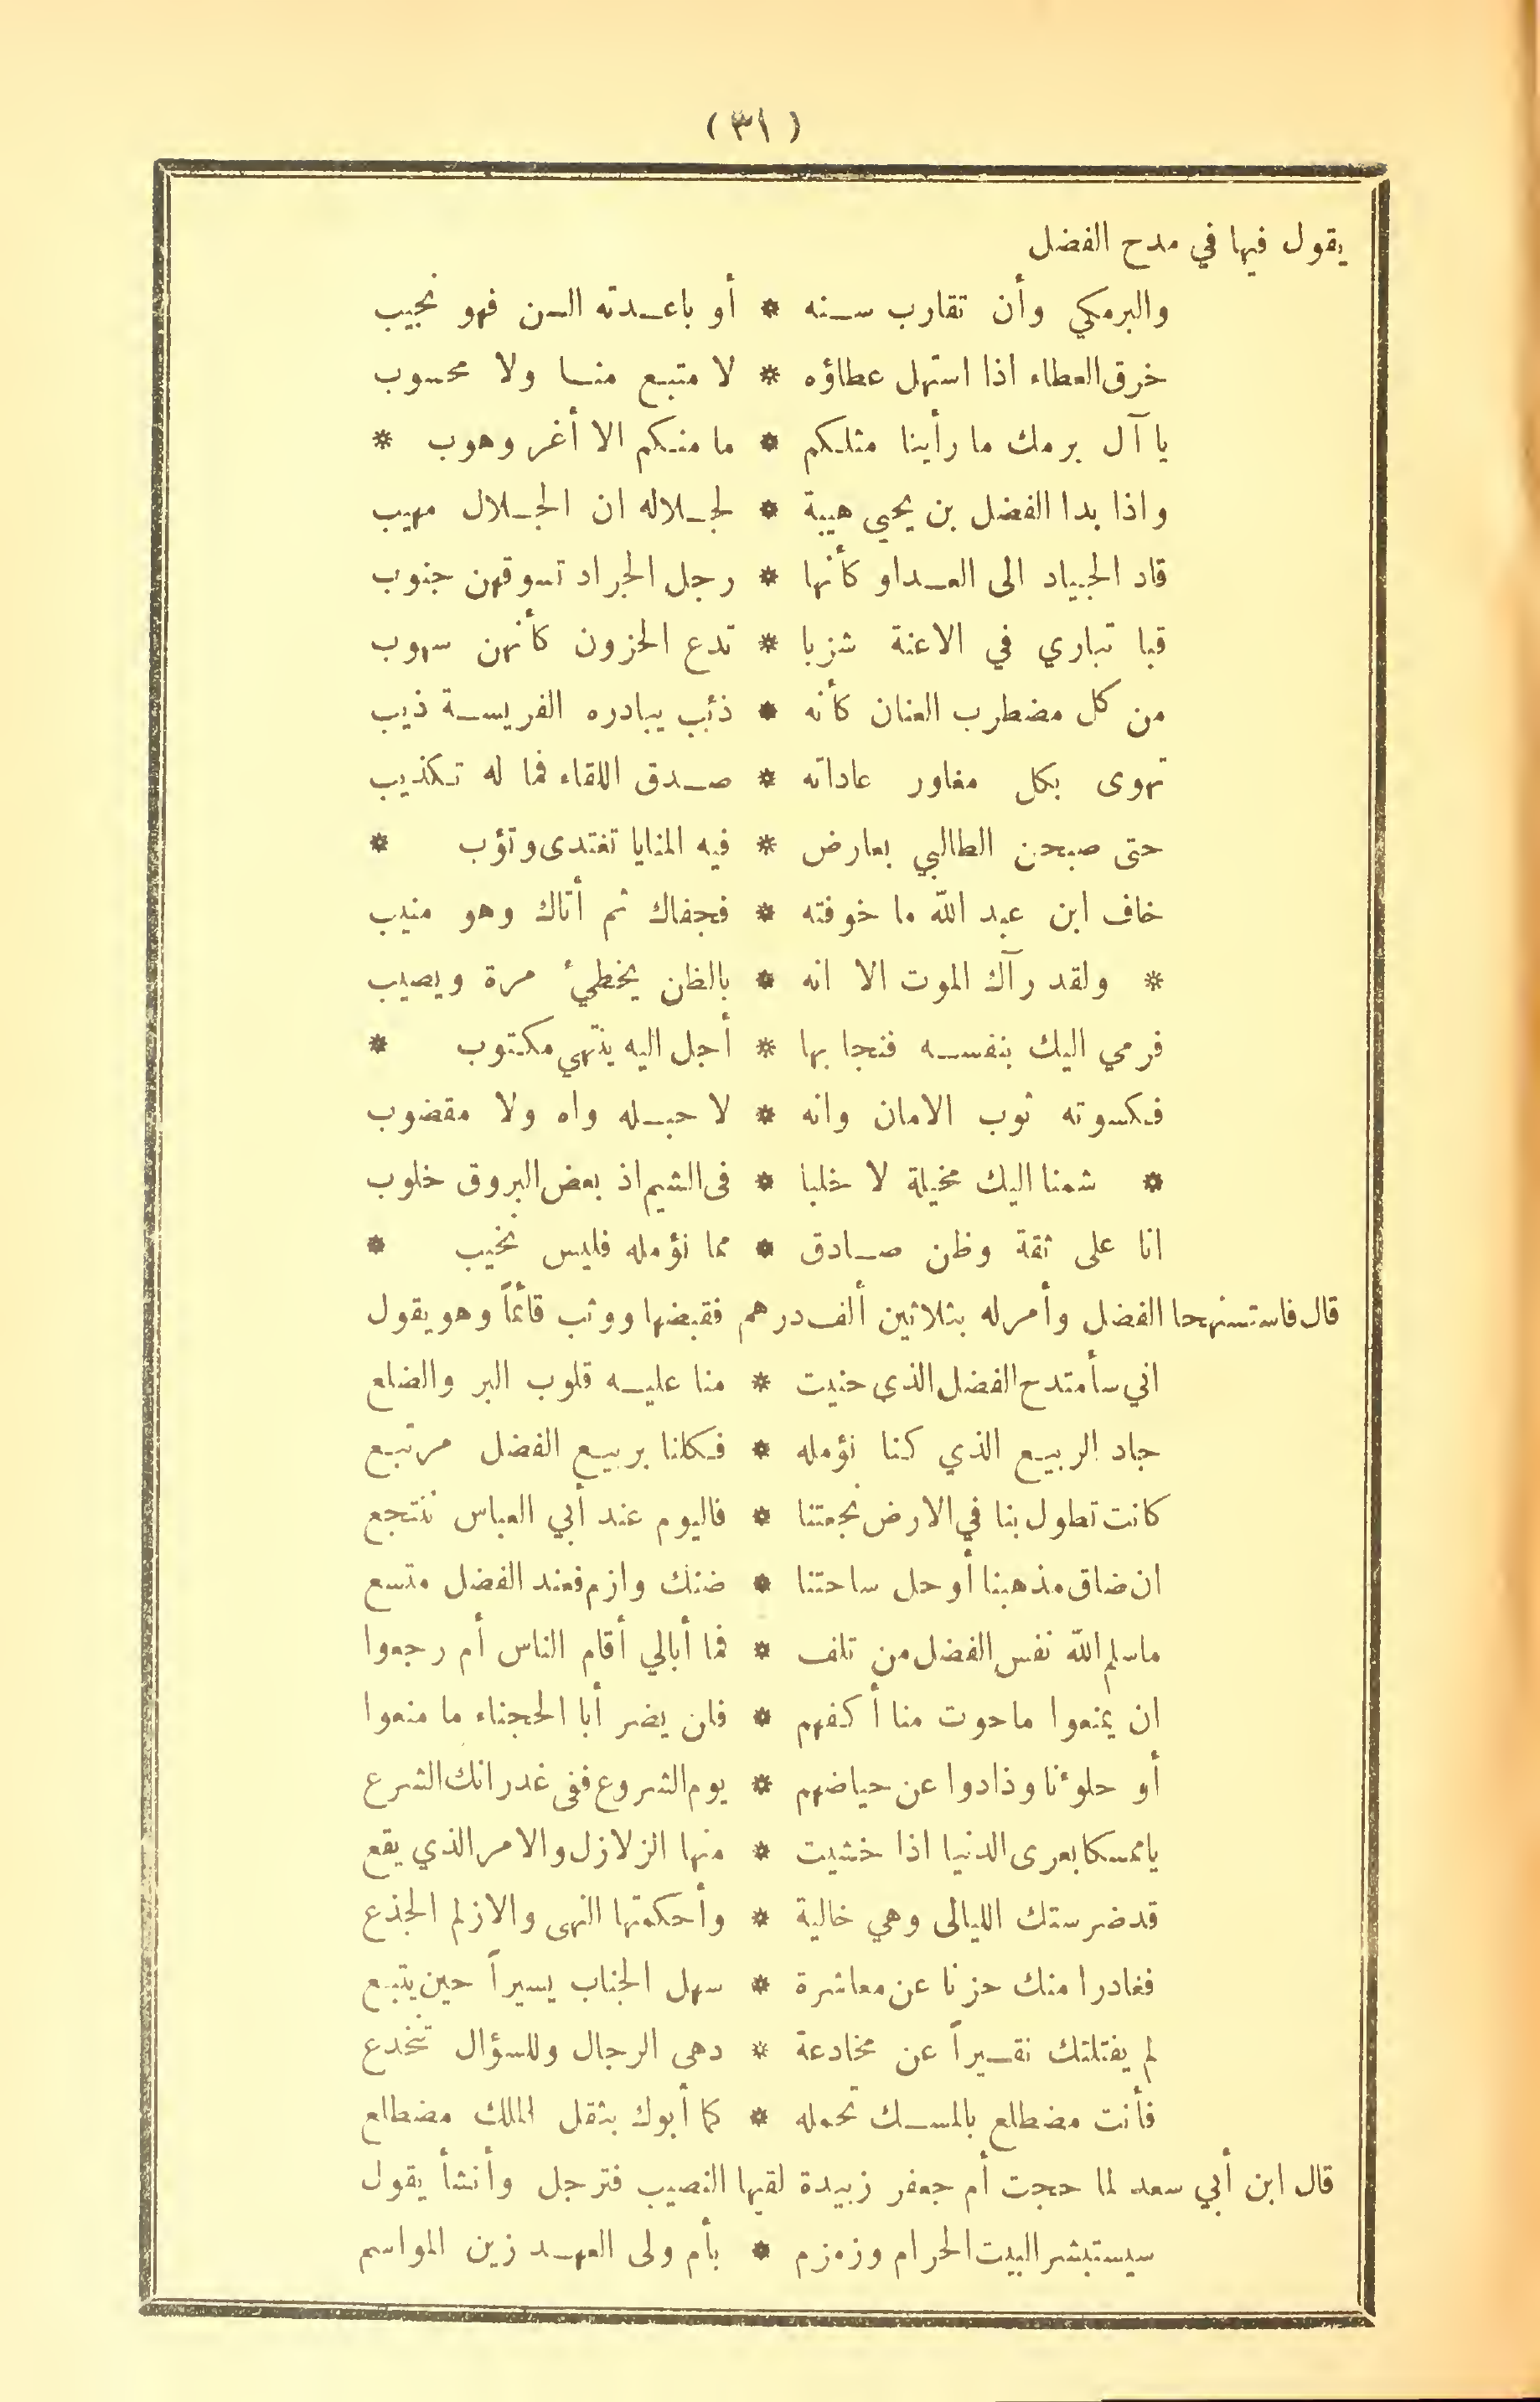 (٣١)
يقول فيها في مدح الفضل
والبرمكي وأن تقارب سنه * أو باعدته السن فهو نجيب
خرق العطاء اذا استهل عطاؤه * لا متبع منا ولا محسوب
يا آل برمك ما رأينا مثلكم * ما منكم الا أغر وهوب *
واذا بدا الفضل بن يحيى هيبة * لجلاله ان الجلال مهيب
قاد الجياد الى العداو كأنها * رجل الجراد تسوقهن جنوب
قبا تباري في الاعنة شزبا * تدع الحزون كأنهن سهوب
من كل مضطرب العنان كأنه * ذئب يبادره الفريسة ذيب
تهوى بكل مغاور عاداته * صدق اللقاء فما له تكذيب
حتى صبحن الطالبي بعارض * فيه المنايا تغتدى وتؤب *
خاف ابن عبد الله ما خوفته * فجفاك ثم أتاك وهو منيب
* ولقد رآك الموت الا انه * بالظن يخطئ مرة ويصيب
فرمي اليك بنفسه فنجا بها * أجل اليه ينتهي مكتوب *
فكسوته ثوب الامان وانه * لا حبله واه ولا مقضوب
* شمنا اليك مخيلة لا خلبا * فى الشيم اذ بعض البروق خلوب
انا على ثقة وظن صادق * مما نؤمله فليس نخيب *
قال فاستنهحا الفضل وأمر له بثلاثين ألف درهم فقبضها ووثب قائماً وهو يقول
اني سأمتدح الفضل الذى حنيت * منا عليه قلوب البر والضلع
جاد الربيع الذي كنا نؤمله * فكلنا بربيع الفضل مرتبع
كانت تطول بنا في الارض نجعتنا * فاليوم عند أبي العباس ننتجع
ان ضاق مذهبنا أو حل ساحتنا * ضنك وازم فعند الفضل متسع
ما سلم الله نفس الفضل من تلف * فما أبالي أقام الناس أم رجعوا
ان يمنعوا ما حوت منا أكفهم * فلن يضر أبا الحجناء ما منعوا
أو حلوئنا وذادوا عن حياضهم * يوم الشروع ففى غدرانك الشرع
يا ممسكا بعرى الدنيا اذا خشيت * منها الزلازل والامر الذي يقع
قد ضرستك الليالى وهي خالية * وأحكمتها النهى والازلم الجذع
فغادرا منك حزنا عن معاشرة * سهل الجناب يسيراً حين يتبع
لم يفتلتك نقسيراً عن مخادعة * دهى الرجال وللسؤال تنخدع
فأنت مضطلع بالمسك تحمله * كما أبوك بثقل الملك مضطلع
قال ابن أبي سعد لما حجت أم جعفر زبيدة لقيها النصيب فترجل وأنشأ يقول
سيستبشر البيت الحرام وزمزم * بأم ولى العهد زين المواسم